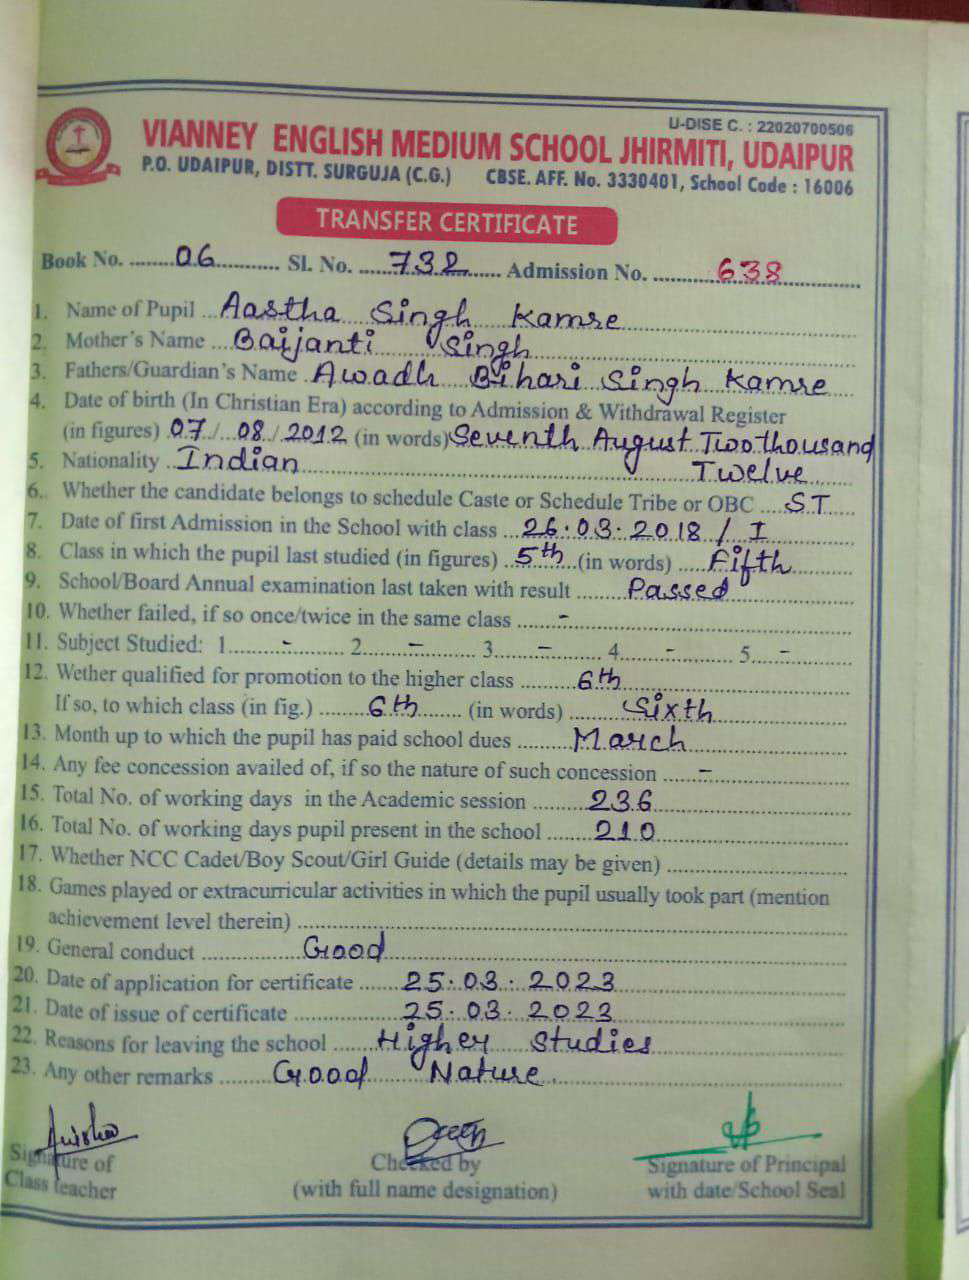 U-DISE C. : 22020700506
VIANNEY ENGLISH MEDIUM SCHOOL JHIRMITI, UDAIPUR
P.O. UDAIPUR, DISTT. SURGUJA (C.G.) CBSE. AFF. No. 3330401, School Code : 16006
TRANSFER CERTIFICATE
Book No. ........06............ Sl. No. .....732...... Admission No. ..........638............
1. Name of Pupil ...Aastha Singh Kamre............
2. Mother's Name ...Baijanti Singh............
3. Fathers/Guardian's Name .Awadh Bihari Singh Kamre....
4. Date of birth (In Christian Era) according to Admission & Withdrawal Register
(in figures) 07/08/2012 (in words) Seventh August Twothousand
5. Nationality ..Indian............ Twelve....
6. Whether the candidate belongs to schedule Caste or Schedule Tribe or OBC ....ST....
7. Date of first Admission in the School with class ...26.03.2018 / I............
8. Class in which the pupil last studied (in figures) ..5th...(in words) ....Fifth............
9. School/Board Annual examination last taken with result ........Passed............
10. Whether failed, if so once/twice in the same class ......-............
11. Subject Studied: 1.........-......... 2.........-......... 3.........-......... 4.........-......... 5.....-
12. Wether qualified for promotion to the higher class ..........6th............
If so, to which class (in fig.) ........6th....... (in words) .........Sixth............
13. Month up to which the pupil has paid school dues ........March............
14. Any fee concession availed of, if so the nature of such concession ......-............
15. Total No. of working days in the Academic session .........236............
16. Total No. of working days pupil present in the school .......210............
17. Whether NCC Cadet/Boy Scout/Girl Guide (details may be given) ............
18. Games played or extracurricular activities in which the pupil usually took part (mention
achievement level therein) ............
19. General conduct ............Good............
20. Date of application for certificate ......25.03.2023............
21. Date of issue of certificate ............25.03.2023............
22. Reasons for leaving the school ......Higher Studies............
23. Any other remarks ........Good Nature............
Signature of
Class teacher
Checked by
(with full name designation)
Signature of Principal
with date/School Seal